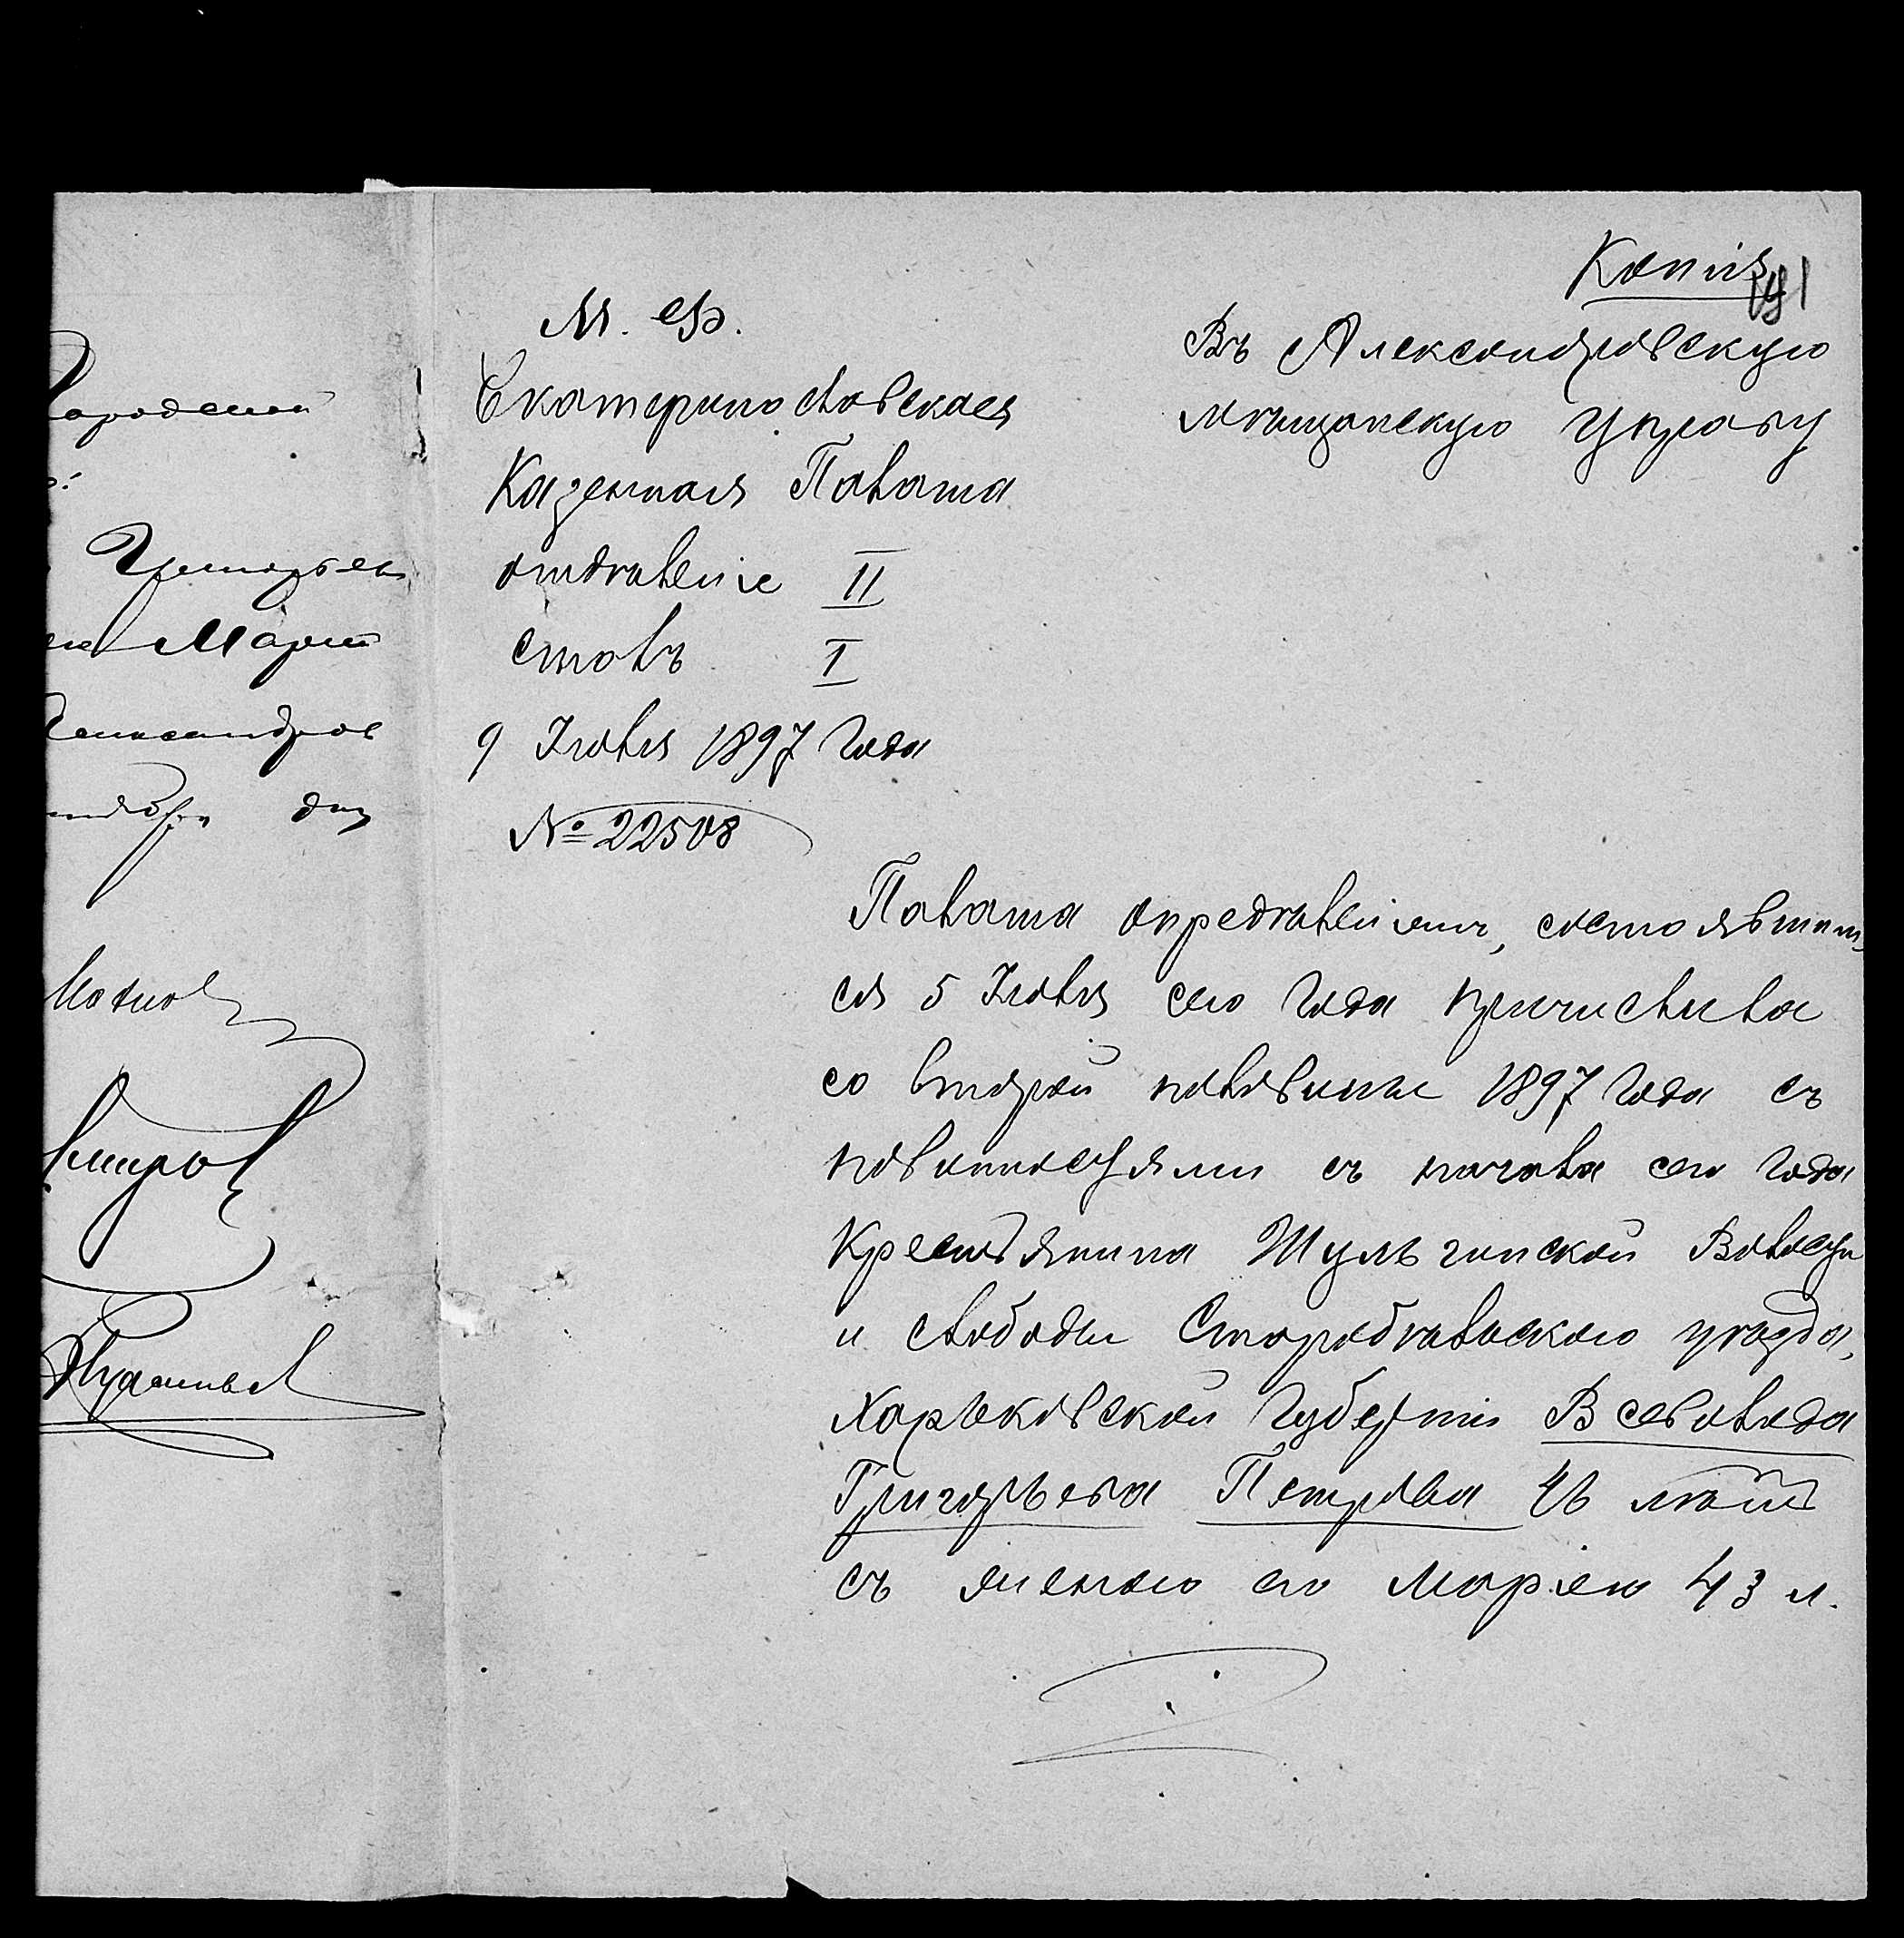 Копія
191
М. Ф.
Екатеринославская
Казенная Палата
отдѣленіе II
столъ I
9 Іюля 1897 года
№ 22508
Въ Александровскую
мѣщанскую управу
Палата опредѣленіемъ, состоявшим
ся 5 Іюля сего года причислила
со второй половины 1897 года съ
повинностями съ начала сего года
Крестьянина Шульгинской Волости
и слободы Старобѣльскаго уѣзда,
Харьковской губерніи Всеволода
Григорьева Петрова 46 лѣтъ
съ женою его Маріею 43 л.
Марій
Александров